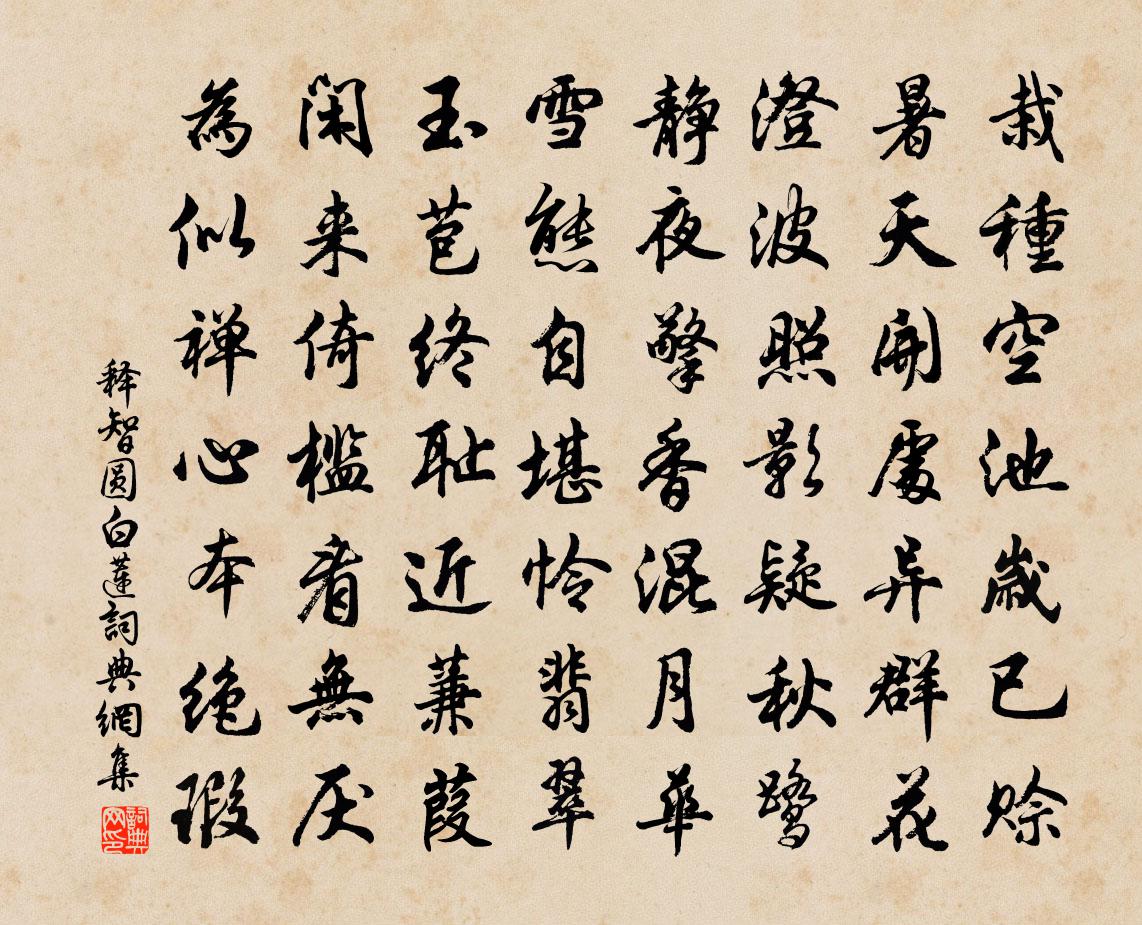 栽種空池歲已賒
暑天開處异群花
澄波照影疑秋鷺
静夜擎香混月華
雪態自堪怜翡翠
玉苞終耻近蒹葭
閑来倚檻看無厌
為似禅心本绝瑕
释智圆白蓮詞典網集
詞典网印